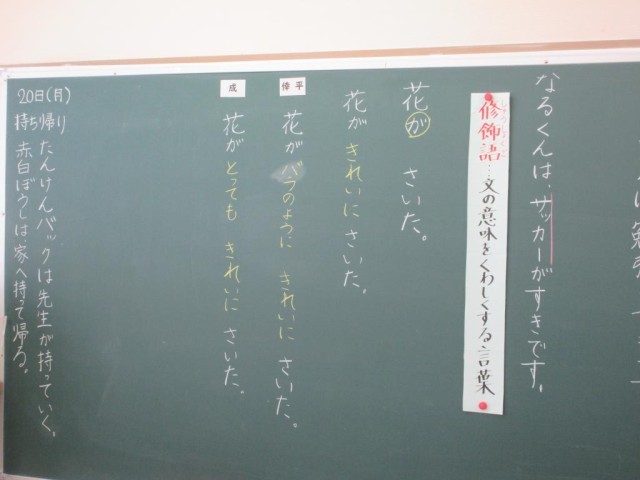 なるくんは、サッカーがすきです。
修飾語…文の意味をくわしくする言葉
花がさいた。
花がきれいにさいた。
倖平
花がバラのようにきれいにさいた。
成
花がとってもきれいにさいた。
20日(月)
持ち帰り
たんけんバックは先生が持っていく。
赤白ぼうしは家へ持って帰る。